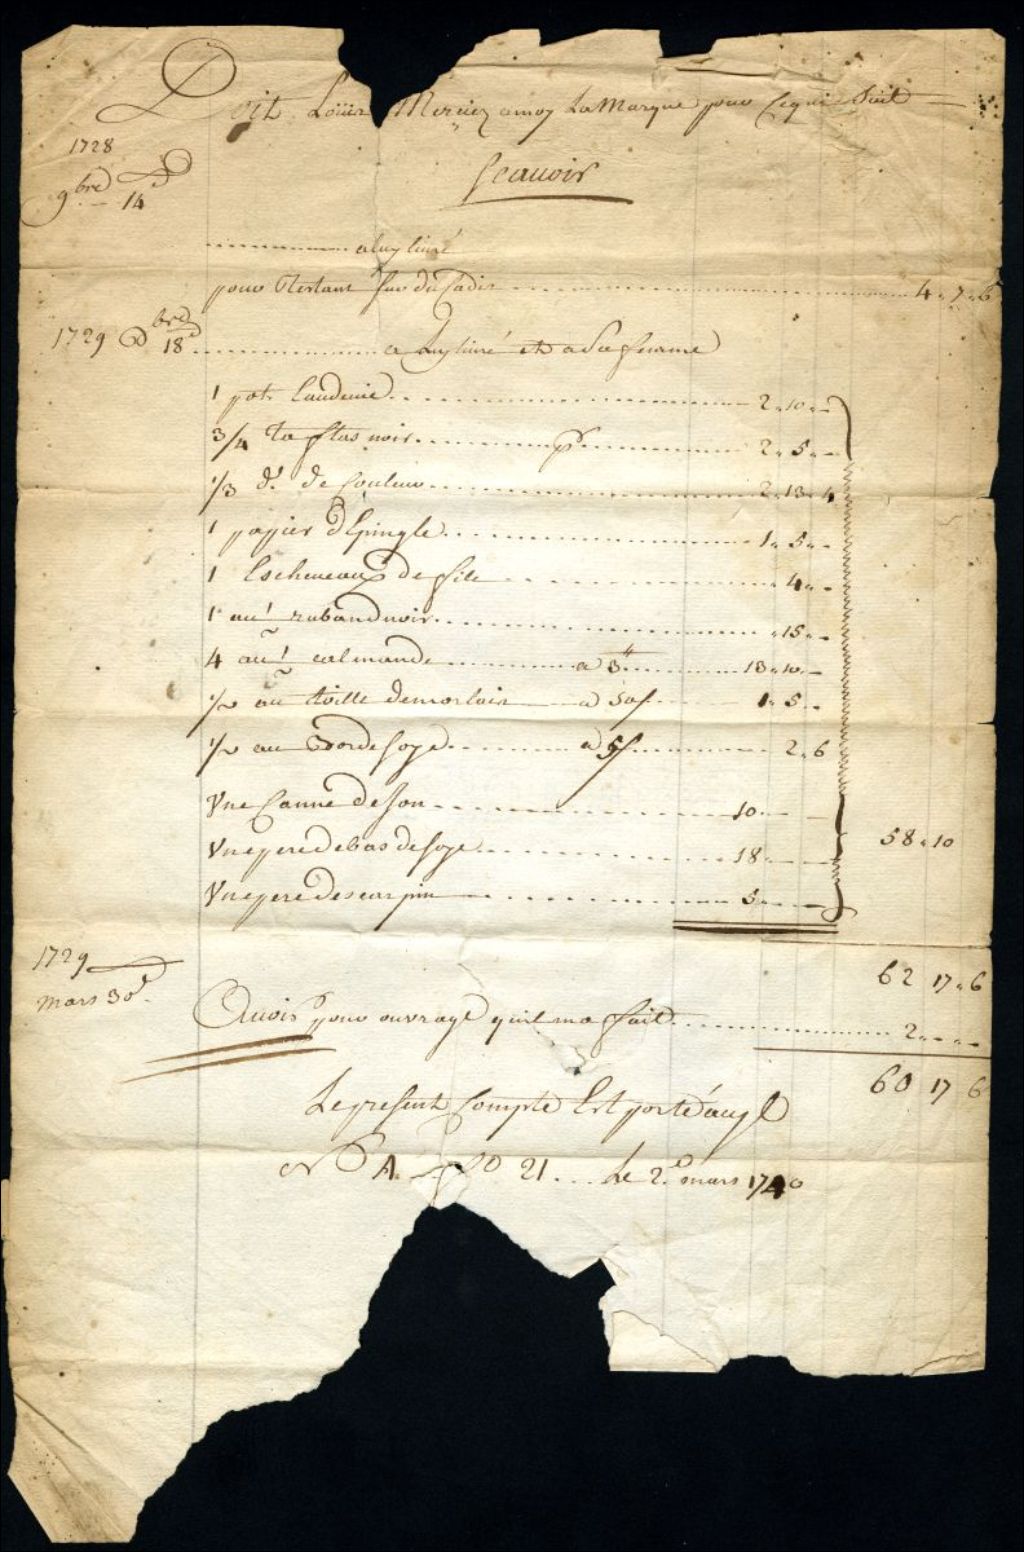 Doit Loüis Mercier a moy La Marque pour Ce qui Suit
Scauoir
1728
9bre 14
a luy liuré
pour Restant sur du Cadis 4 " 7 " 6
1729 bre 18 a Luy liuré et a Sa femme
1 pot Eaudeuie 2 " 10 " -
3/4 taftas noir 2 " 5 " -
1/3 d° de Couleur 2 " 13 " 4
1 papier d'Epingle 1 " 5 " -
1 Escheueaux de file " 4 " -
1 au! ruband noir " 15 " -
4 au! calmande a 3 13 " 10 " -
1/2 au toille demorlaix a 50s 1 " 5 " -
1/2 au Cordesoye a 5s 2 " 6
Vne Canne de Jon 10 " -
Vne pere debas desoye 18 " -
Vne pere descarpin 5 " -
58 " 10
62 17 " 6
1729
mars 30
Auoir pour ouvrage quil ma fait 2 " - " -
60 17 6
Le present Compte Est porté au gl
N° A f° 21 Le 2 mars 1740